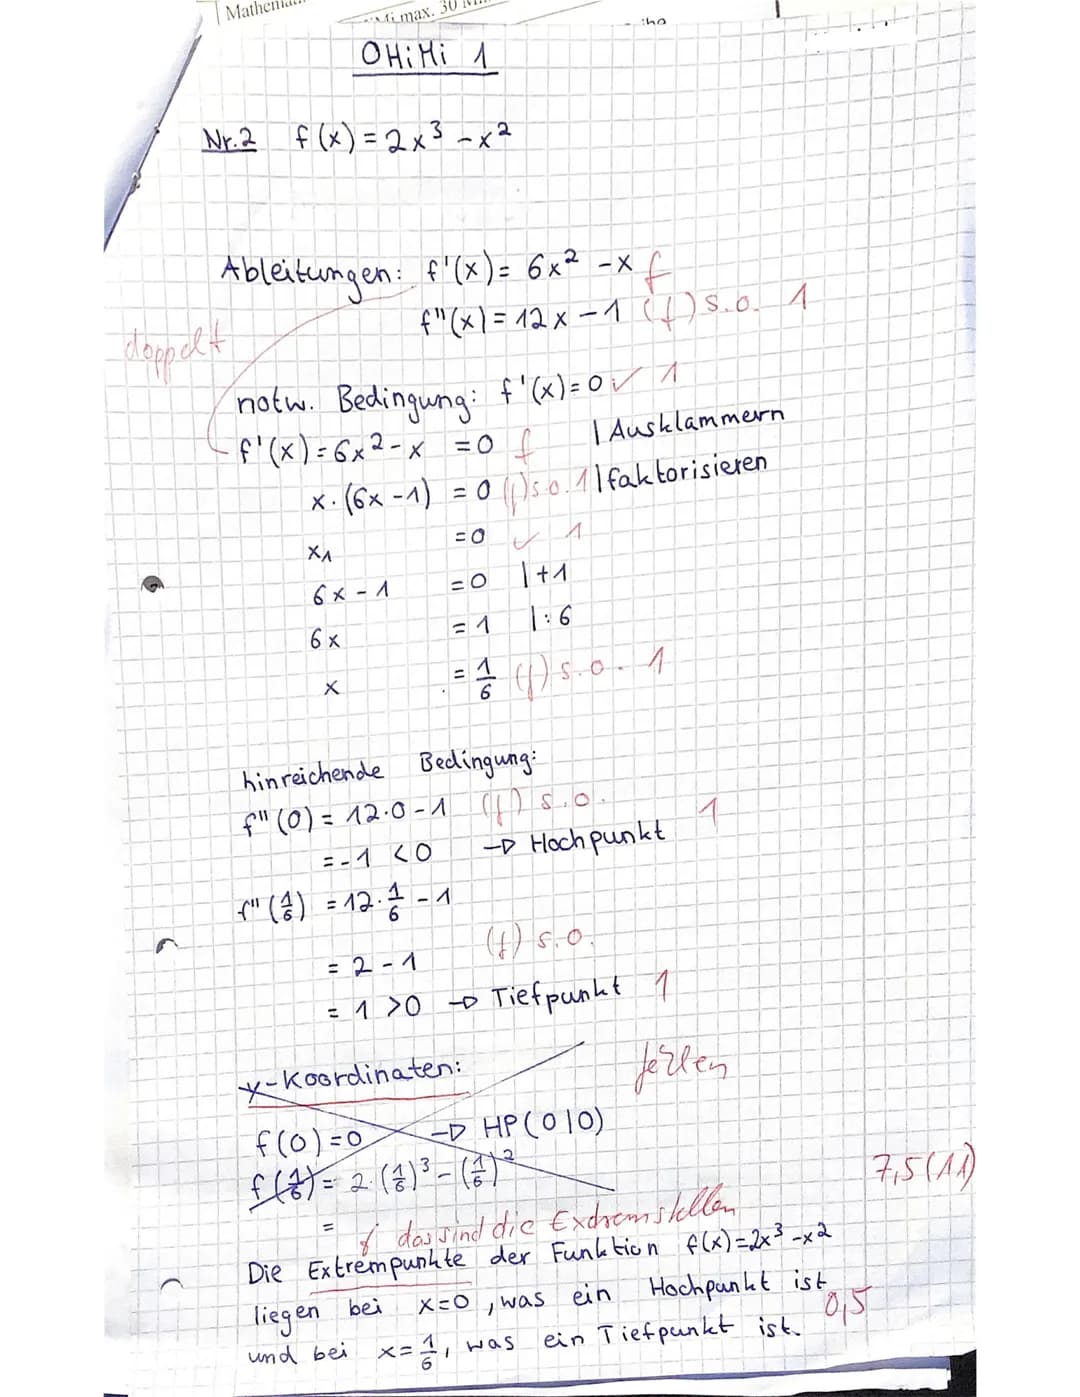 Mi max. 30
OHiMi 1
Nr.2 f(x) = 2x³ - x²
Ableitungen: f'(x) = 6x² - x f
f''(x) = 12x - 1 (f) s.o. 1
doppelt
notw. Bedingung: f'(x) = 0 ✓ 1
f'(x) = 6x² - x = 0 f | Ausklammern
x · (6x - 1) = 0 (f) s.o. 1 | faktorisieren
x₁ = 0 ✓ 1
6x - 1 = 0 | +1
6x = 1 | : 6
x = 1/6 (f) s.o. 1
hinreichende Bedingung:
f''(0) = 12·0 - 1 (f) s.o.
= -1 < 0 → Hochpunkt 1
f''(1/6) = 12 · 1/6 - 1
= 2 - 1 (f) s.o.
= 1 > 0 → Tiefpunkt 1
y-Koordinaten: fehlen
f(0) = 0 → HP(0|0)
f(1/6) = 2·(1/6)³ - (1/6)²
7,5 (11)
= f das sind die Extremstellen
Die Extrempunkte der Funktion f(x) = 2x³ - x²
liegen bei x = 0, was ein Hochpunkt ist
0,5
und bei x = 1/6, was ein Tiefpunkt ist.